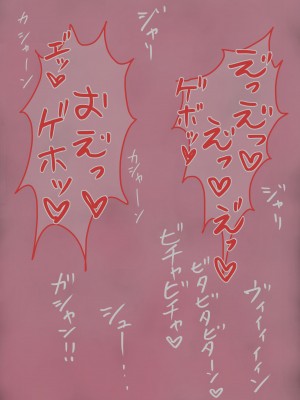 ジャリ
えっえっ♡
えっ♡えっ♡
ゲボッ♡
ジャリ
ヴィィィィン
ビタビタビターン♡
ビチャビチャ♡
カシャーン
エッ♡
おえっ♡
ゲホッ♡
カシャーン
シュー・・・
ガシャン!!